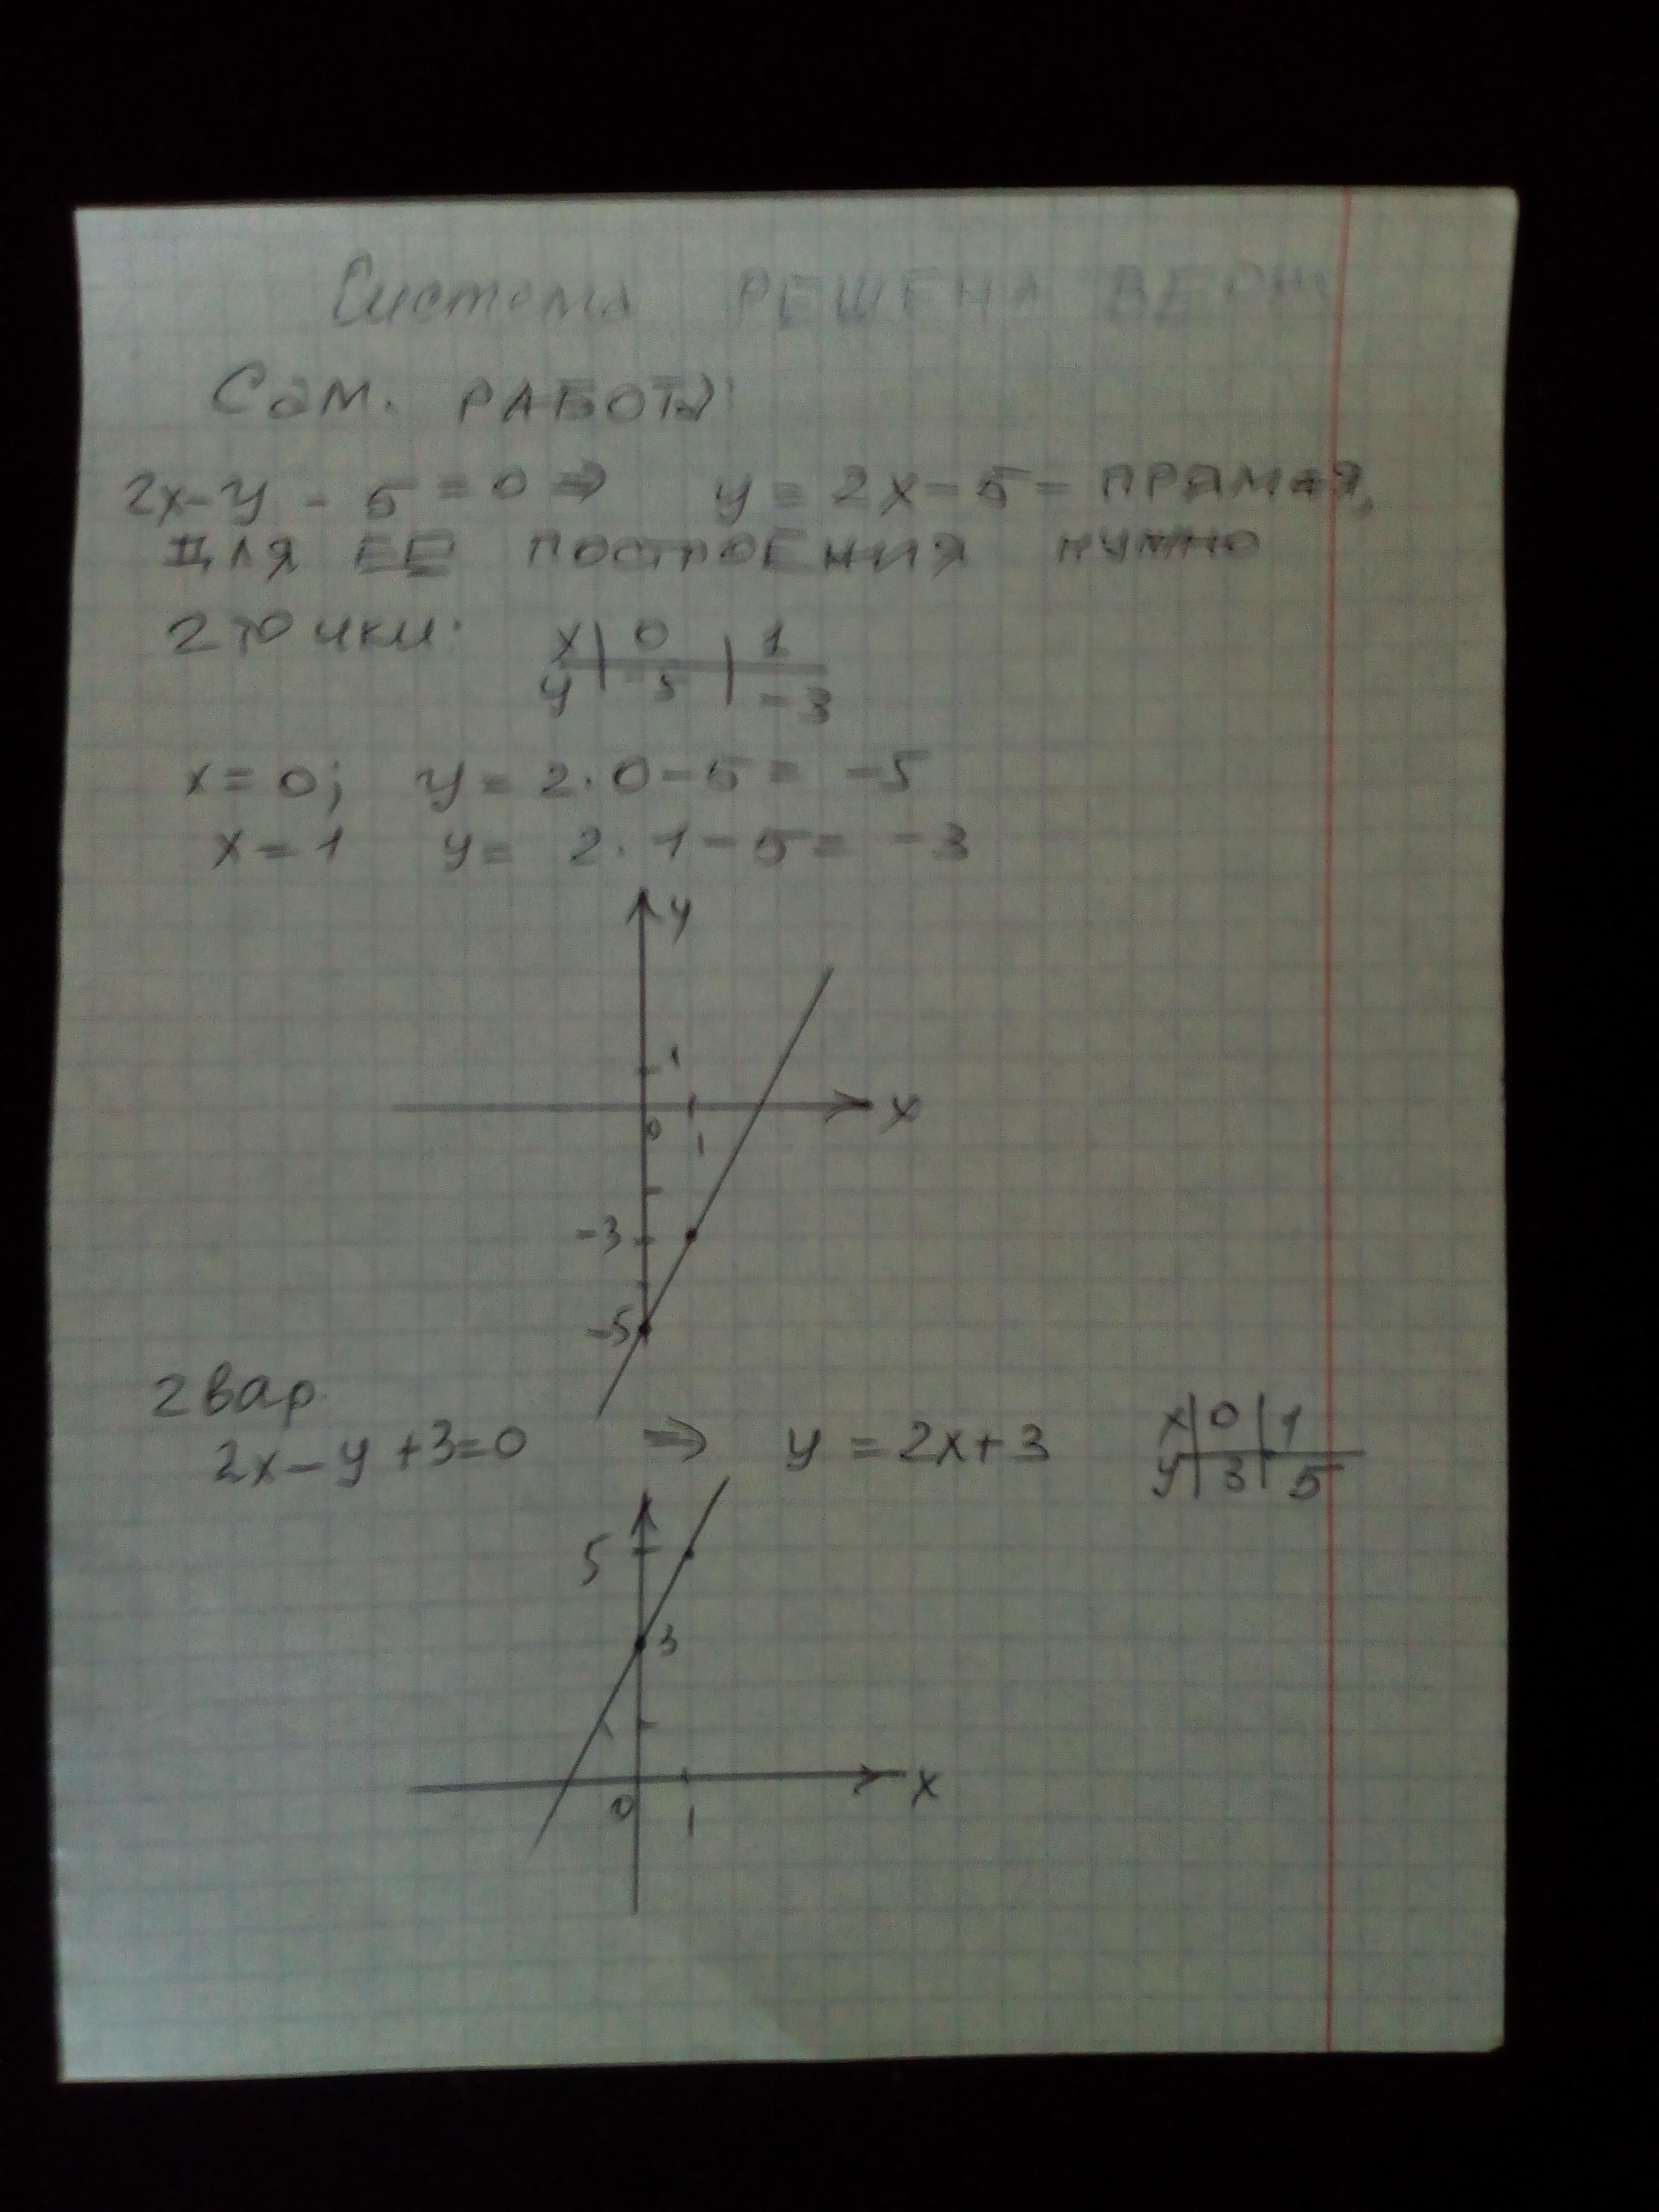 Система РЕШЕНА ВЕРН
Сам. РАБОТЫ:
2x-y-5=0 ⇒ y=2x-5- ПРЯМАЯ,
ДЛЯ ЕЕ ПОСТРОЕНИЯ НУЖНО
2 точки:
x | 0 | 1
y | -5 | -3
x=0; y=2·0-5= -5
x=1 y= 2·1-5= -3
y
1
0 1 x
-3
-5
2 вар.
2x-y+3=0 ⇒ y=2x+3
x | 0 | 1
y | 3 | 5
5
3
0 1 x